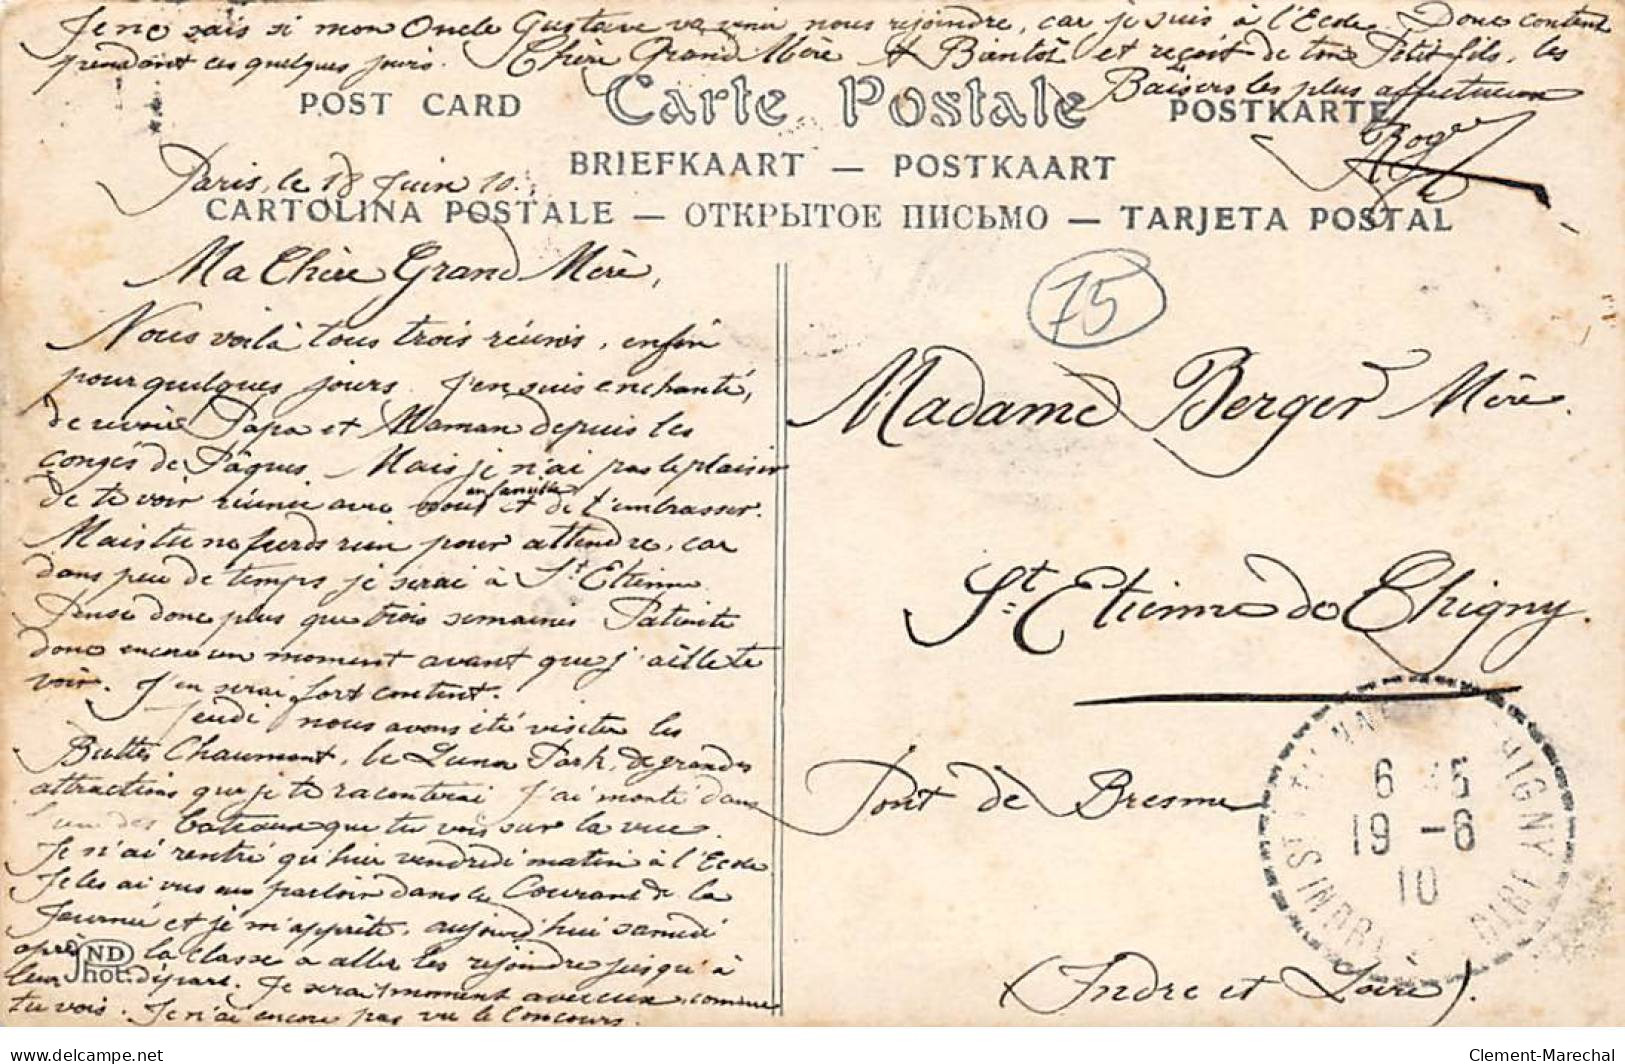 Je ne sais si mon Oncle Gustave va venir nous rejoindre, car je suis à l'Ecole. Donc content
pendant ces quelques jours. Chère Grand Mère A Bientôt et reçoit de ton Petit fils, les
Baisers les plus affectueux
Roger
POST CARD Carte Postale POSTKARTE
BRIEFKAART — POSTKAART
Paris, le 18 Juin 10.
CARTOLINA POSTALE — ОТКРЫТОЕ ПИСЬМО — TARJETA POSTAL
Ma Chère Grand Mère,
Nous voilà tous trois réunis, enfin
pour quelques jours. J'en suis enchanté,
de revoir Papa et Maman depuis les
congés de Pâques. Mais je n'ai pas le plaisir
de te voir réunie avec nous en famille et de t'embrasser.
Mais tu ne perds rien pour attendre, car
dans peu de temps je serai à St Etienne
Pense donc plus que trois semaines Patiente
donc encore un moment avant que j'aille te
voir. J'en serai fort content.
Jeudi nous avons été visiter les
Buttes Chaumont, le Luna Park, de grandes
attractions que je te raconterai J'ai monté dans
l'un des bateaux que tu vois sur la vue.
Je n'ai rentré qu'hier vendredi matin à l'Ecole
Je les ai vus au parloir dans le Courant de la
Journée et je m'apprête, aujourd'hui samedi
après la classe à aller les rejoindre jusqu'à
leur départ. Je serai moment avec eux, comme
tu vois. Je n'ai encore pas vu le Concours.
ND
Phot.
75
Madame Berger Mère.
St Etienne de Chigny.
Pont de Bresme
(Indre et Loire).
6 45
19 - 6
10
INDRE
Clement-Marechal
delcampe.net